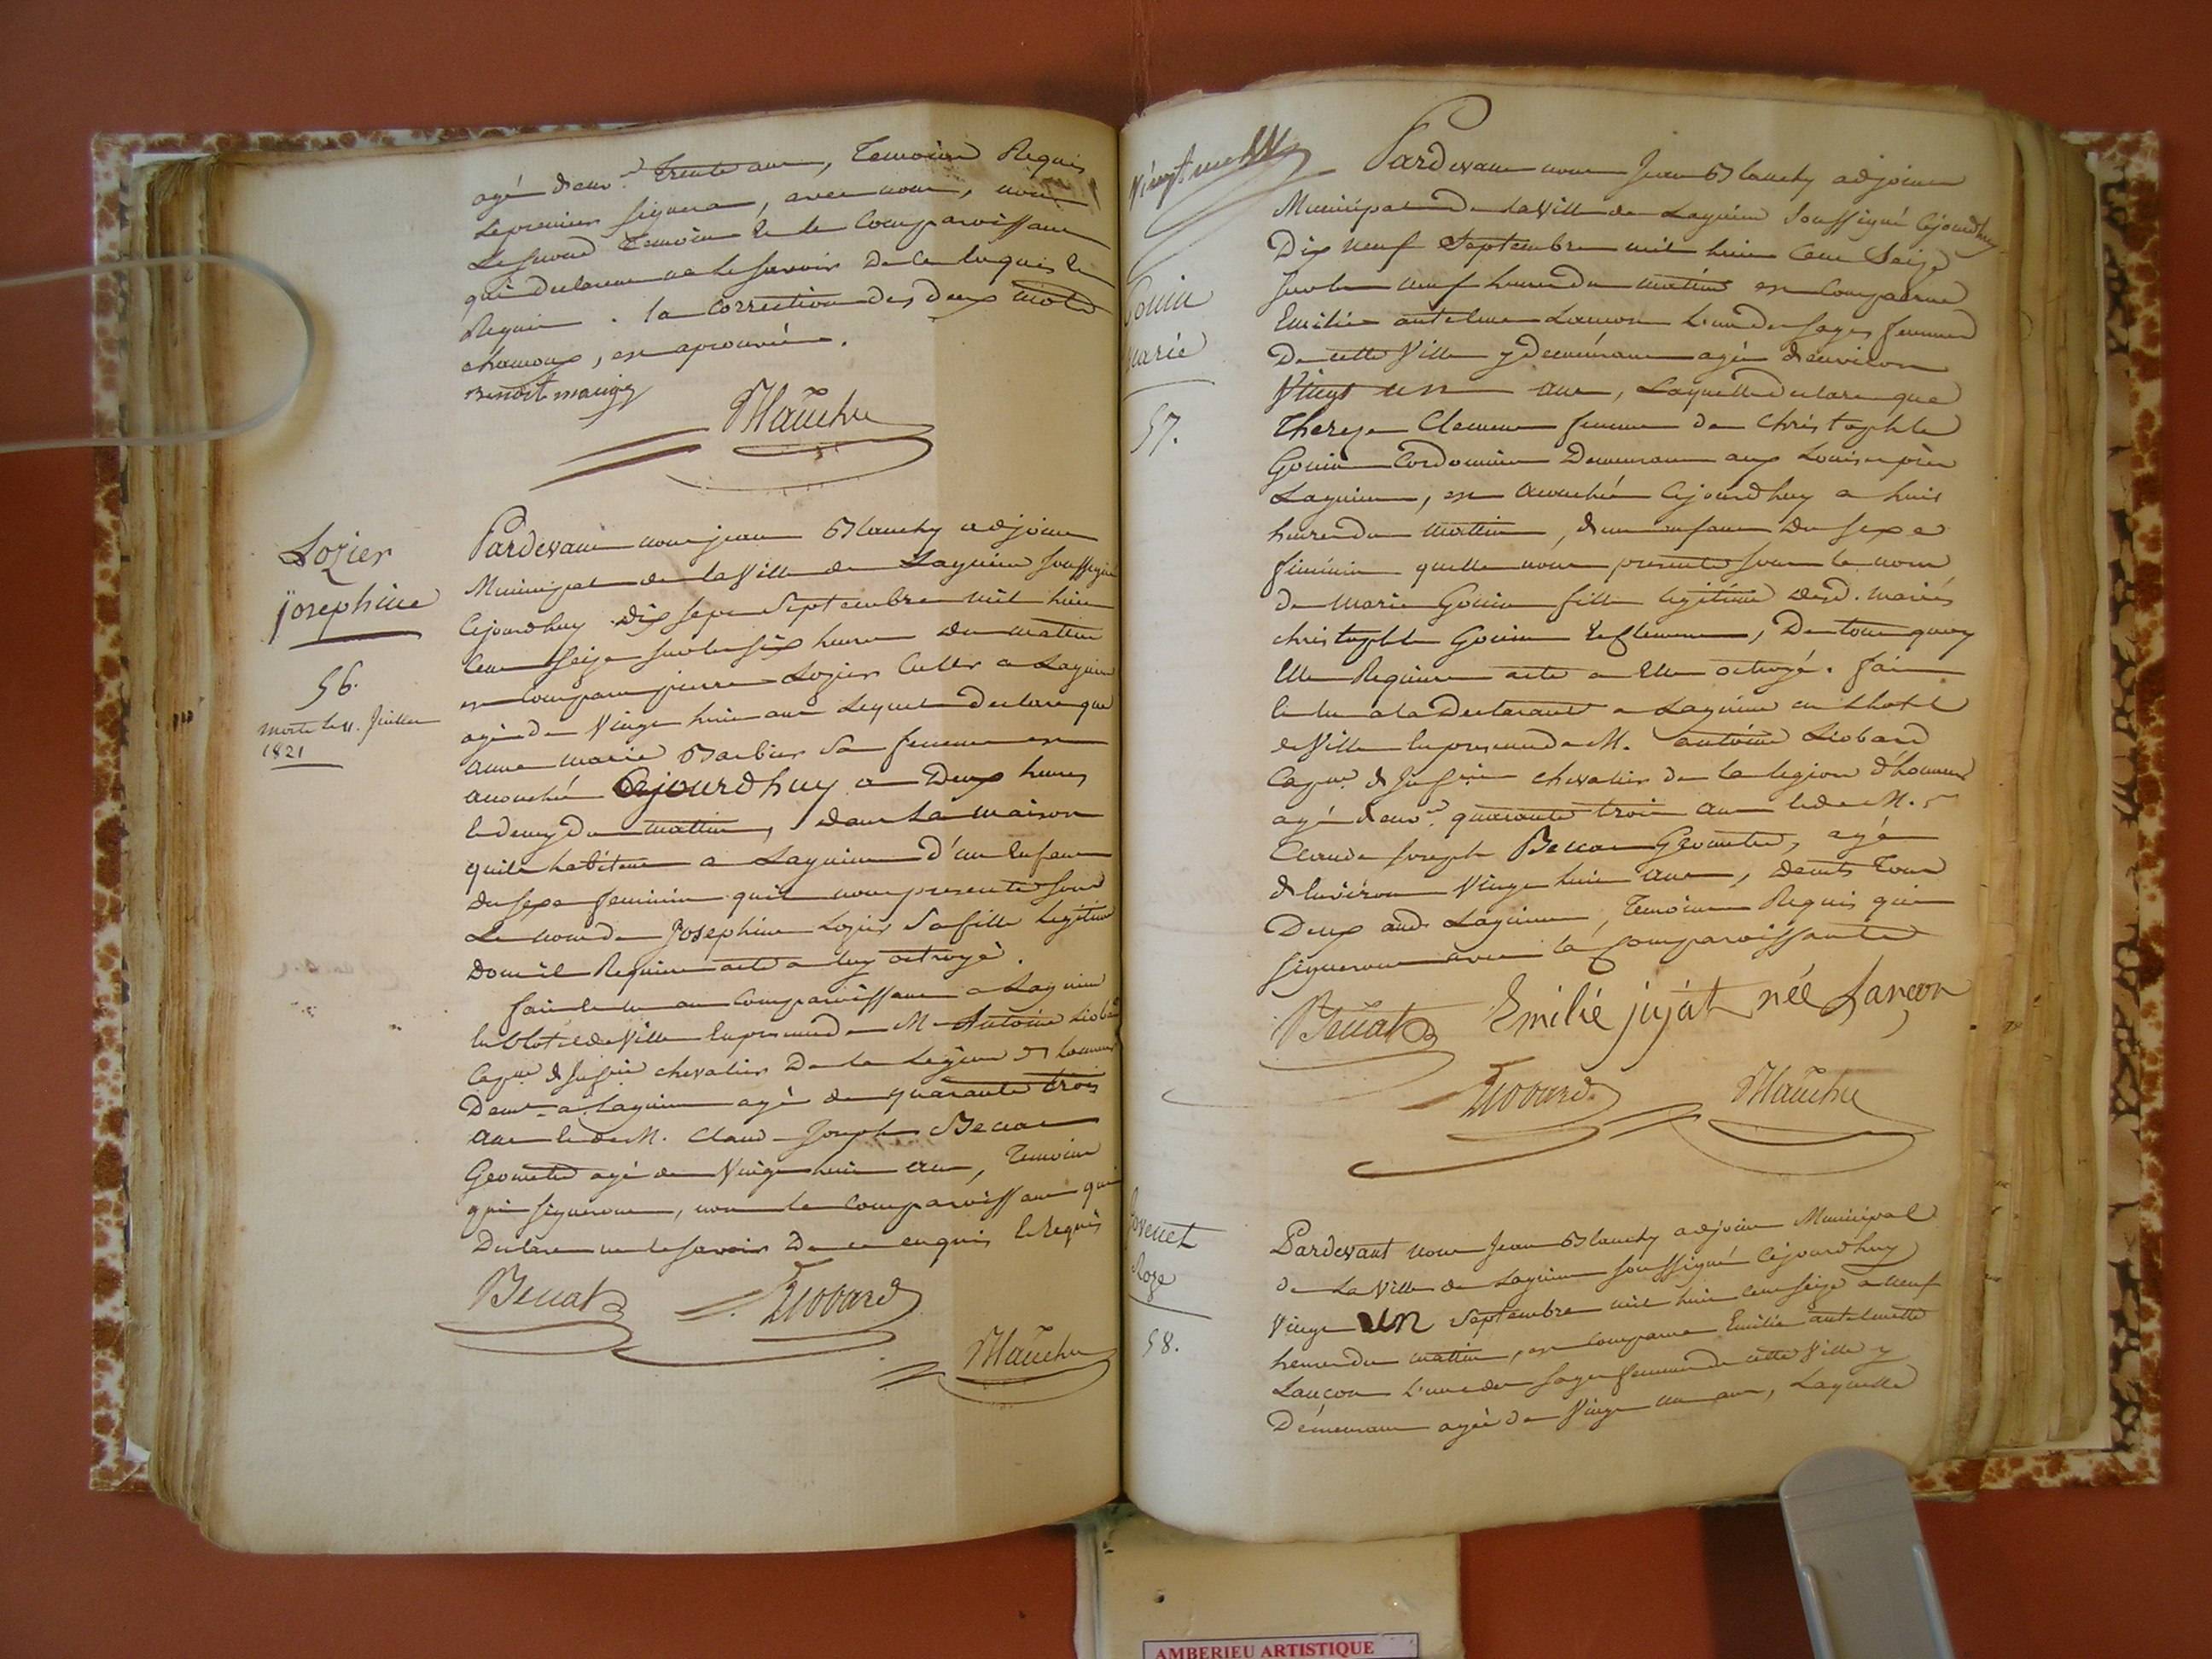 agé d'env.n trente ans, Temoins Requis
Le premier signera, avec nous, non
Le second Temoin & le Comparoissant
qui declarent ne le savoir De ce Enquis &
Requis. la Correction des deux mots
, est aprouvée.
Benoit maugy
Blauchy
Lozier
josephine
56.
morte le 11. Juillet
1821
Pardevant nous jean Blauchy adjoint
Municipal de la Ville de Lagnieu soussigné
Cejourdhuy dix sept Septembre mil huit
Cent seize sur les six heures du mattin
est Comparu pierre Lozier Cult.r a Lagnieu
agé de Vingt huit ans Lequel declare que
anne marie Barbier sa femme est
acouchée Cejourdhuy a Deux heures
& demy du mattin, dans La maison
quils habitent a Lagnieu d'un Enfant
du sexe feminin quil nous presente sous
Le nom de Josephine Lozier sa fille legitime
dont il Requiert acte a luy octroyé.
fait & lu au Comparoissant a Lagnieu
en lhotel de Ville En presence de M. Antoine Liobard
Cap.ne d'Inf.rie chevalier De la Legion d'honneur
Dem.t a Lagnieu agé de quarante trois
ans & de M. Claude Joseph Beccat
Geometre agé de Vingt huit ans, Temoins
qui signeront, non le Comparoissant qui
Declare ne le savoir De ce enquis & Requis
Beccat Liobard
Blauchy
Vingt neuf
Gouin
marie
57.
Pardevant nous Jean Blauchy adjoint
Municipal De la Ville de Lagnieu Soussigné Cejourdhuy
Dix neuf Septembre mil huit Cent Seize
sur les neuf heures du mattin est Comparue
Emilie antelme Lancon l'une des sages femmes
De cette Ville y demeurant agée d'environ
Vingt un ans, Laquelle declare que
Thereze Clement femme de Christophle
Gouin Cordonnier Demeurant aux près
Lagnieu, est acouchée Cejourdhuy a huit
heures du mattin, d'un enfant du sexe
féminin quelle nous presente sous le nom
de marie Gouin fille legitime desd. mariés
christophle Gouin & Clement, De tout quoy
Elle Requiert acte a Elle octroyé. fait
& lu a la Declarante a Lagnieu en lhotel
de Ville En presence de M. antoine Liobard
Cap.ne d'Inf.rie chevalier de la legion d'honneur
agé d'env.n quarante trois ans & de M.
Claude Joseph Beccat Géometre, agé
d'Environ Vingt huit ans, demts Tous
Deux aud. Lagnieu, Temoins Requis qui
signeront avec la Comparoissante
Beccat Emilie jujat née Lançon
Liobard Blauchy
Jovenet
Roze
58.
Pardevant nous Jean Blauchy adjoint Municipal
de La Ville de Lagnieu soussigné Cejourdhuy
Vingt un Septembre mil huit cent seize a neuf
heures du mattin, est comparue Emilie antelmette
Lançon l'une des sages femmes de cette Ville y
Demeurant agée de Vingt un ans, Laquelle
AMBERIEU ARTISTIQUE